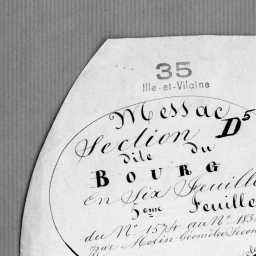 35
Ille-et-Vilaine
Messac
Section D⁵
dite du
BOURG
En Six Feuille
5eme Feuille
du Nº 1574 au Nº 183
par Mr